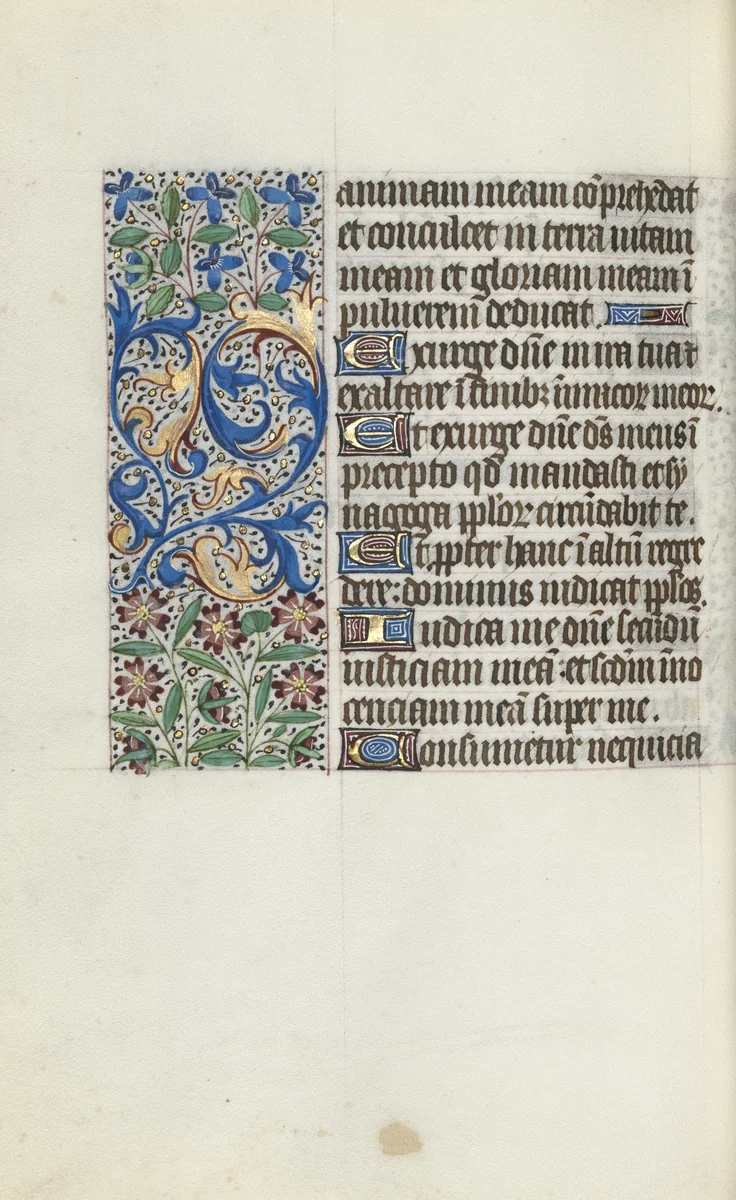 animam meam cōprehēdat
et conculcet in terra uitam
meam et gloriam meam ī
puluerem deducat.
Exurge dn̄e in ira tua ⁊
exaltare ī finibꝫ inimicoꝝ meoꝝ.
Et exurge dn̄e ds̄ meus ī
precepto qd̄ mandasti et sy
nagoga pploꝝ circūdabit te.
Et ꝓpter hanc ī altū regre
dere: dominus iudicat pplōs.
Iudica me dn̄e secūdū
iusticiam meā: et scdm̄ īno
cenciam meā super me.
Consumetur nequicia